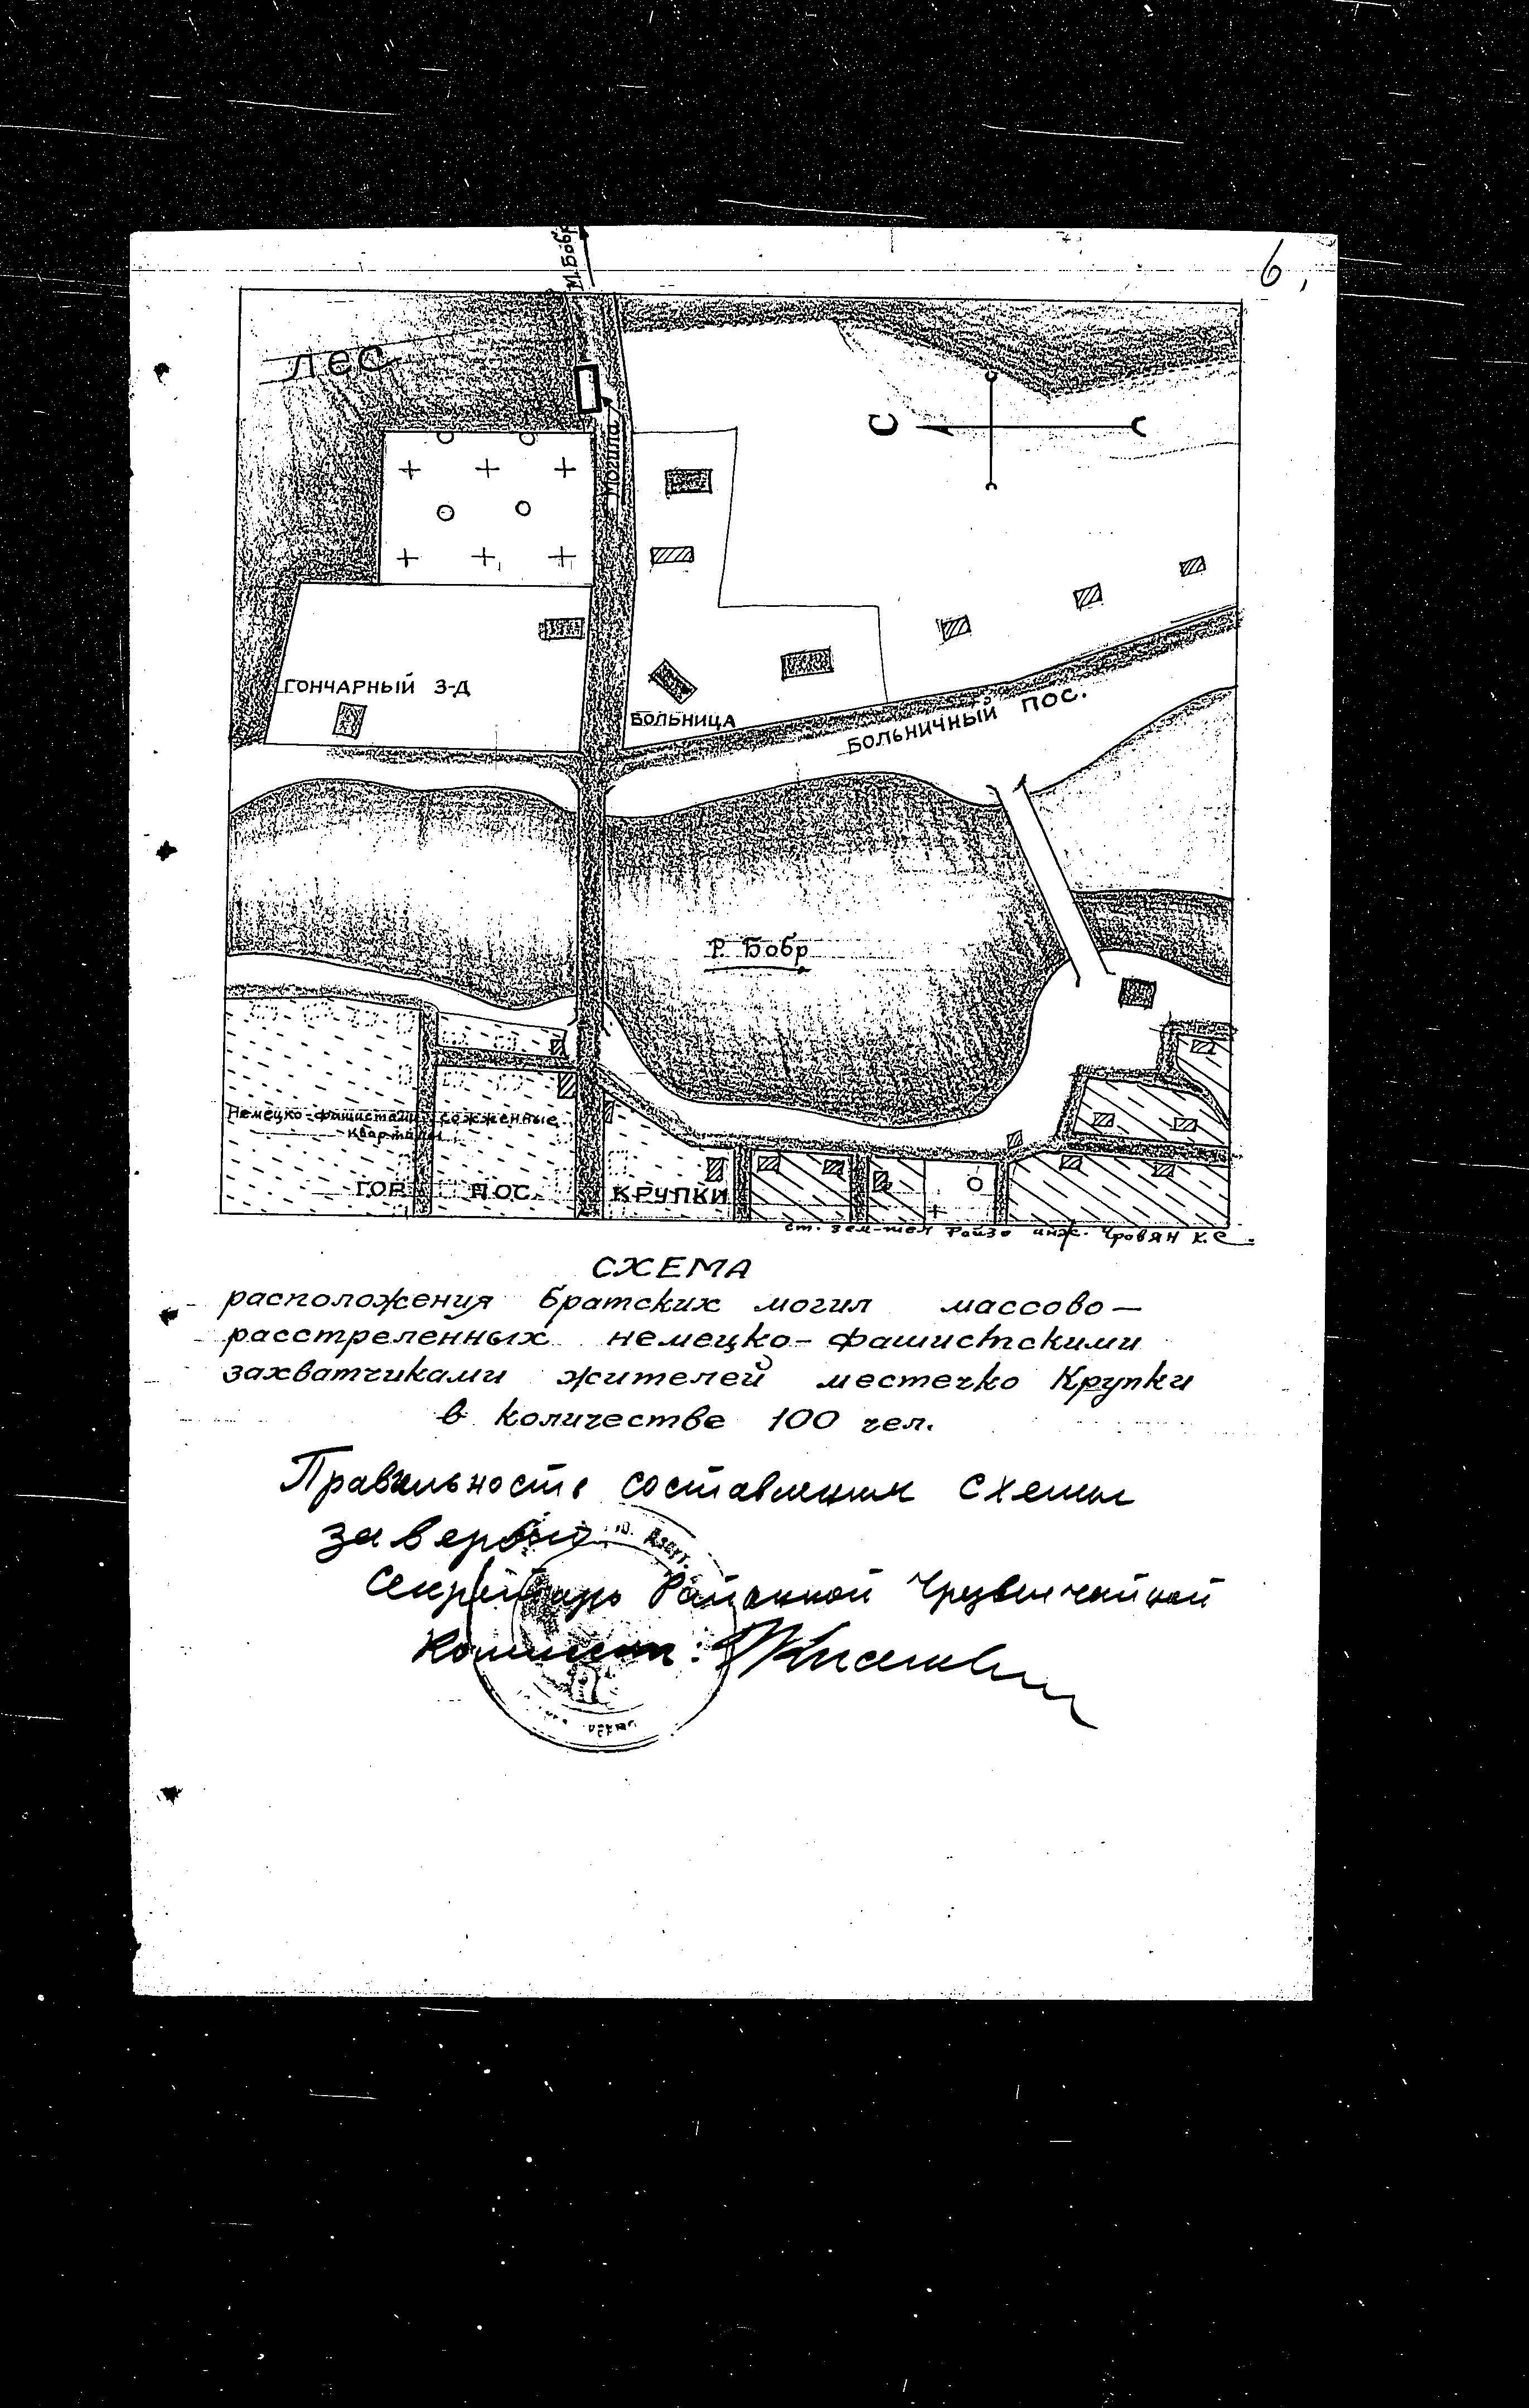 6,
М. Бобр
ЛЕС
С
могила
ГОНЧАРНЫЙ З-Д
БОЛЬНИЦА
БОЛЬНИЧНЫЙ ПОС.
Р. Бобр
Немецко-фашистами сожженные
кварталы
ГОР. ПОС. КРУПКИ
ст. зем-тел Райзо инж. К.С.
СХЕМА
расположения братских могил массово-
расстреленных немецко-фашистскими
захватчиками жителей местечко Крупки
в количестве 100 чел.
Правильность составления схемы
заверяю
Секретарь Районной Чрезвычайной
Комиссии: